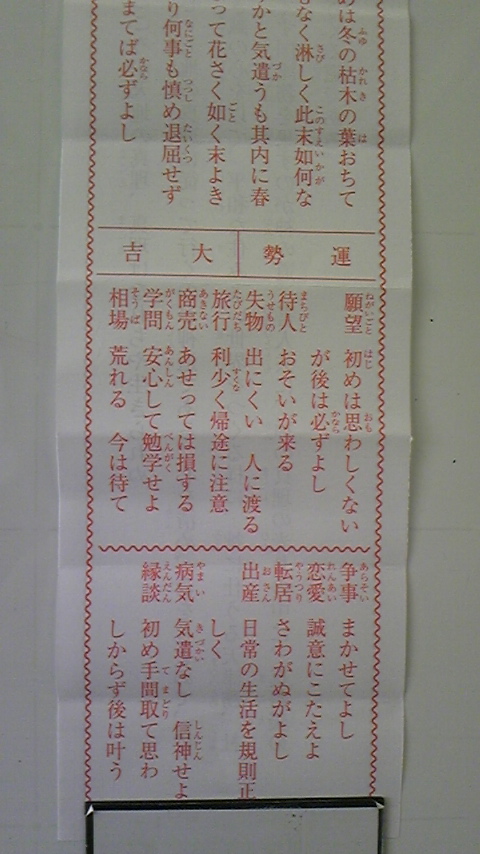 めは冬の枯木の葉おちて
もなく淋しく此末如何な
かと気遣うも其内に春
って花さく如く末よき
り何事も慎め退屈せず
まてば必ずよし
運勢 大吉
願望 初めは思わしくない
が後は必ずよし
待人 おそいが来る
失物 出にくい 人に渡る
旅行 利少く帰途に注意
商売 あせっては損する
学問 安心して勉学せよ
相場 荒れる 今は待て
争事 まかせてよし
恋愛 誠意にこたえよ
転居 さわがぬがよし
出産 日常の生活を規則正
しく
病気 気遣なし 信神せよ
縁談 初め手間取て思わ
しからず後は叶う